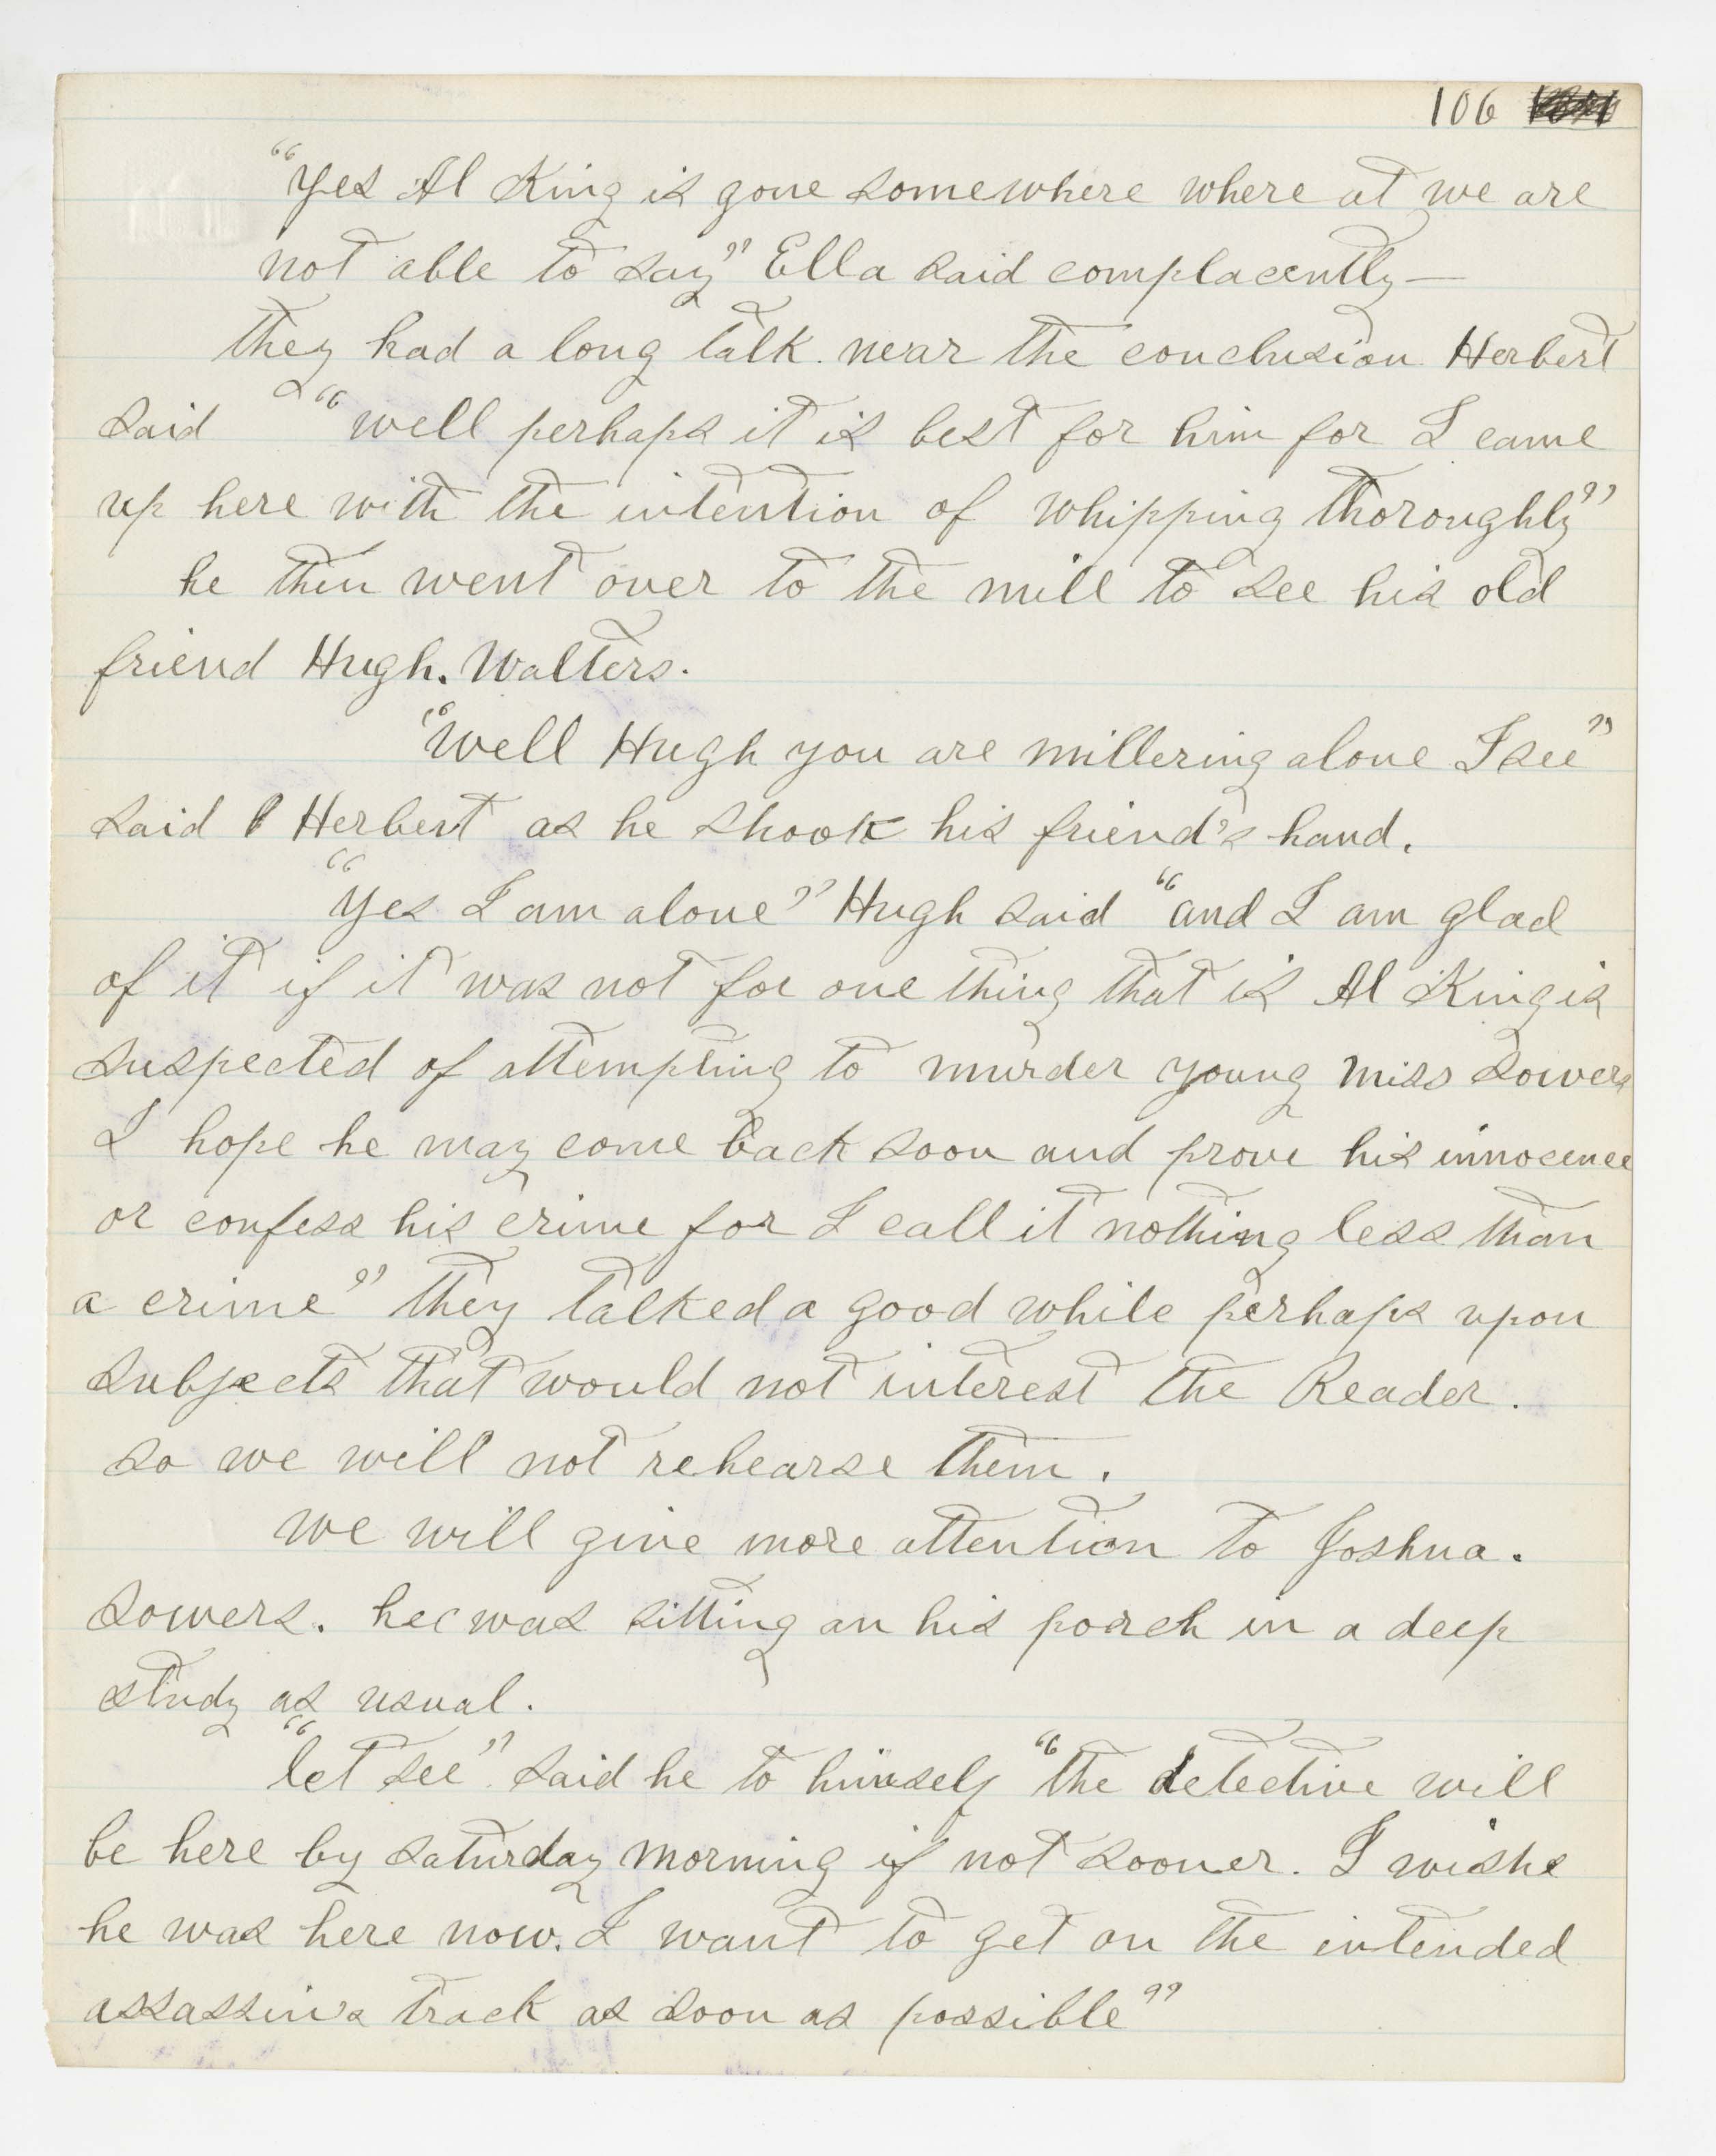 106
“Yes Al King is gone somewhere where at we are
not able to say” Ella said complacently—
they had a long talk. near the conclusion Herbert
said “well perhaps it is best for him for I came
up here with the intention of whipping thoroughly”
he then went over to the mill to see his old
friend Hugh. Walters.
“Well Hugh you are millering alone I see”
said Herbert as he shook his friend's hand.
“Yes I am alone” Hugh said “and I am glad
of it if it was not for one thing that is Al King is
suspected of attempting to murder young miss Sowers
I hope he may come back soon and prove his innocence
or confess his crime for I call it nothing less than
a crime” they talked a good while perhaps upon
subjects that would not interest the Reader.
so we will not rehearse them.
we will give more attention to Joshua.
Sowers. he was sitting on his porch in a deep
study as usual.
“let see” said he to himself “the detective will
be here by saturday morning if not sooner. I wishe
he was here now. I want to get on the intended
assassin's track as soon as possible”